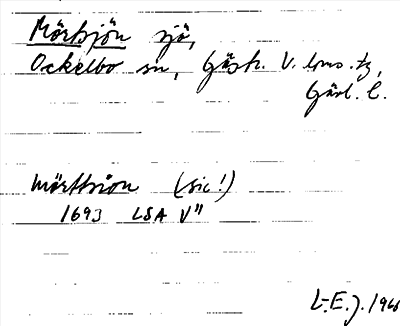 Mörtsjön sjö,
Ockelbo sn, Gästr. V. oms. tg,
Gävl. l.
Mörttsiön (sic!)
1693 LSA V"
L-E. J. 1966